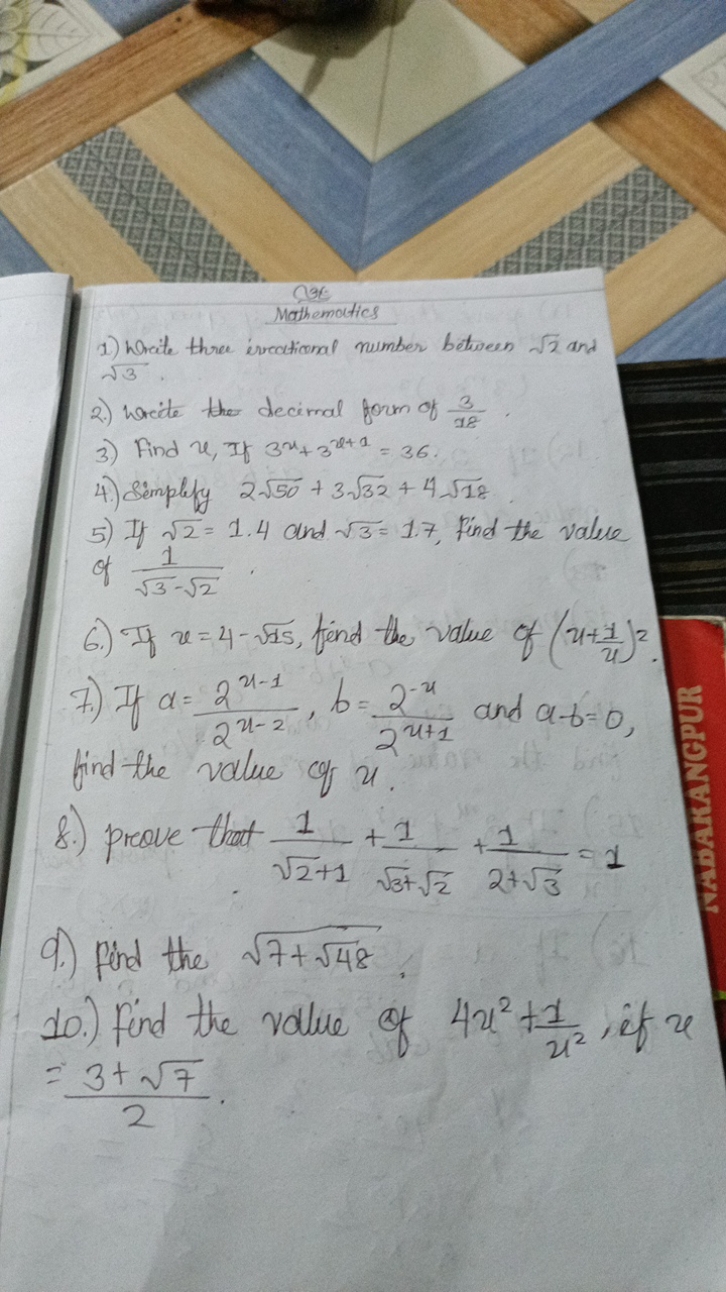 Mathematics
1) Write three irrational number between √2 and
√3.
2.) Write the decimal form of 3/18.
3) Find x, If 3^x + 3^(x+1) = 36.
4.) Simplify 2√50 + 3√32 + 4√18.
5) If √2 = 1.4 and √3 = 1.7, find the value
of 1/(√3-√2).
6.) If x = 4-√15, find the value of (x+1/x)².
7.) If a = 2^(x-1)/2^(x-2), b = 2^(-x)/2^(x+1) and a-b=0,
find the value of x.
8.) prove that 1/(√2+1) + 1/(√3+√2) + 1/(2+√3) = 1
9.) find the √(7+√48).
10.) find the value of 4x² + 1/x², if x
= (3+√7)/2.
NABAKANGPUR